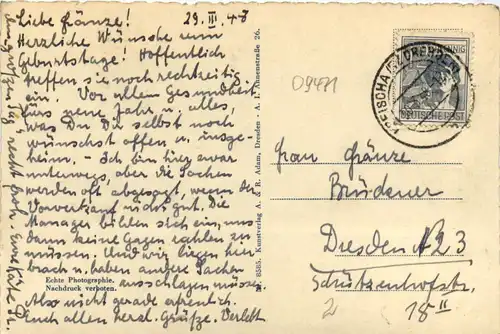 29.III.48
Liebe Gränze!
Herzliche Wünsche zum
Geburtstage! Hoffentlich
treffen sie noch rechtzeitig
ein. Vor allem Gesundheit
fürs ganze Jahr u. alles,
was Du Dir selbst noch
wünschst offen u. insge-
heim. - Ich bin hier zwar
unterwegs, aber die Sachen
werden oft abgesagt, wenn der
Vorverkauf nicht gut. Die
Manager bilden sich ein, uns
dann keine Gagen zahlen zu
müssen. Und wir liegen hier
brach u. haben andere Sachen
ausschlagen müssen.
Also nicht gerade erfreulich.
Euch allen herzl. Grüße. Verlebt
den großen Tag recht froh. Eure Käte
Echte Photographie.
Nachdruck verboten.
Nr. 8585. Kunstverlag A. & R. Adam, Dresden - A. 1, Ahnenstraße 26.
09471
PFENNIG
DEUTSCHE POST
KREISCHA
DRESDEN
Frau Gränze
Brückner
Dresden N 23
Schützenhofstr.
18 II
2